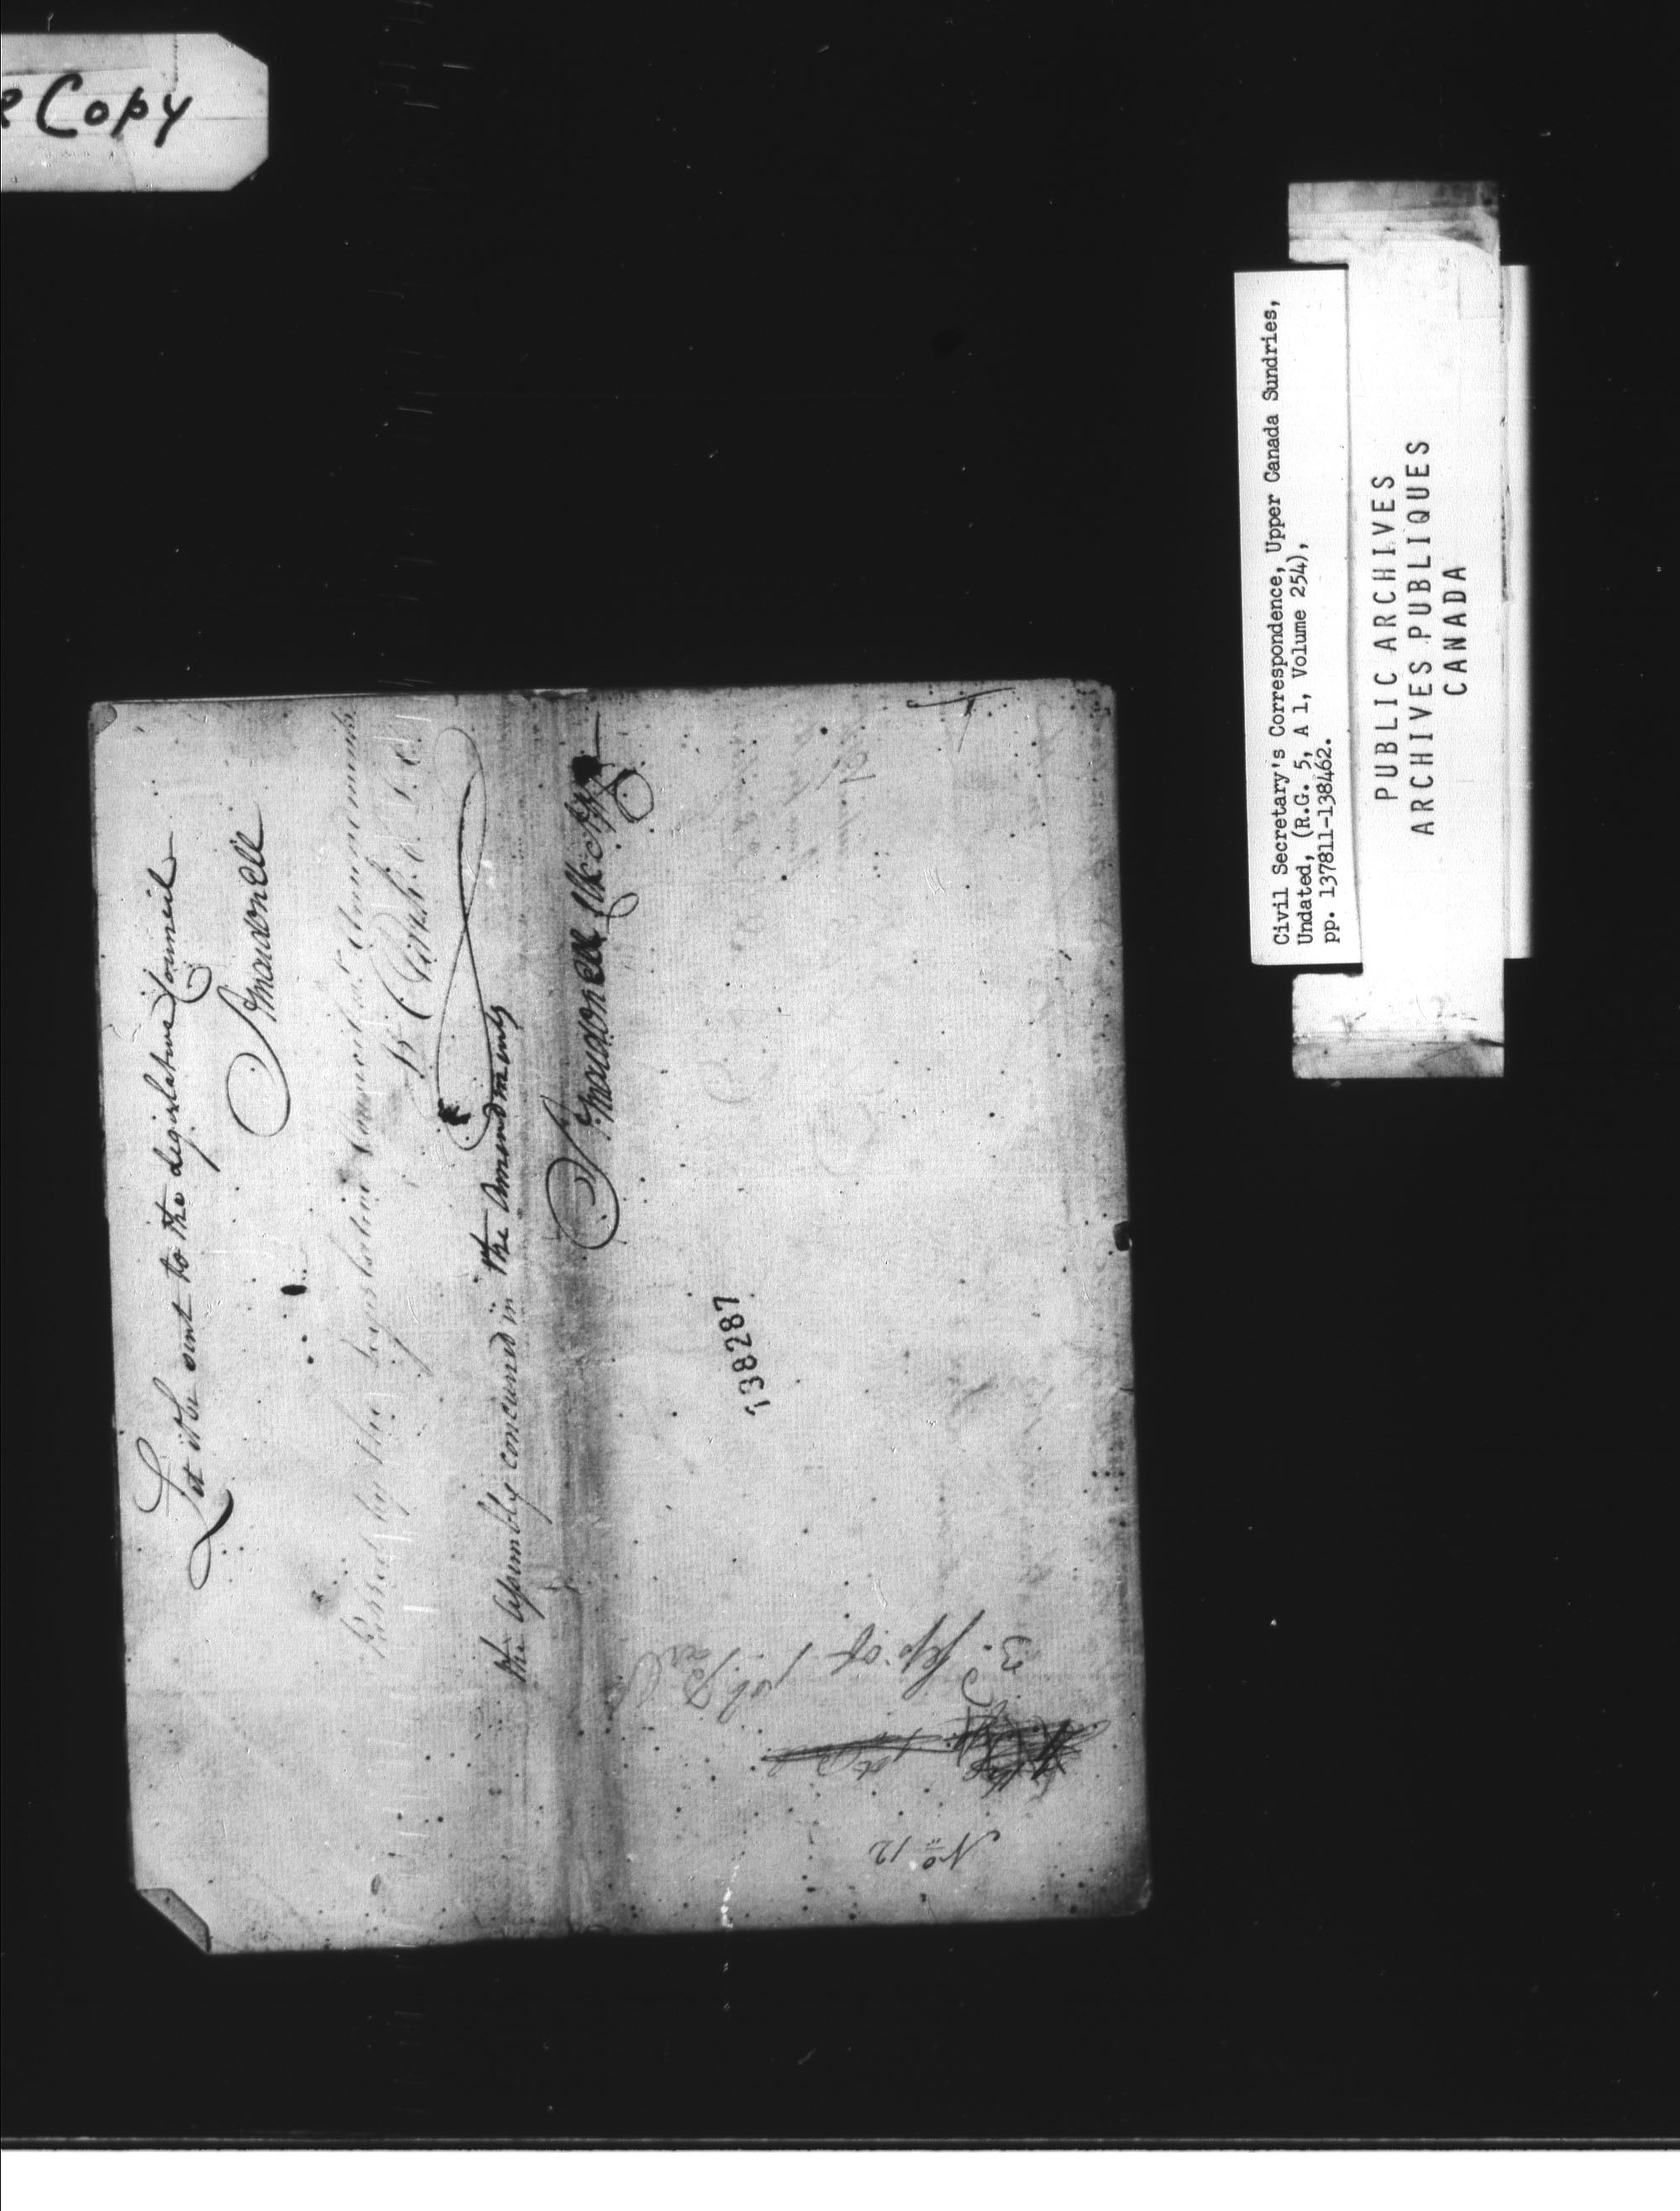 Copy
Let it be sent to the Legislative Council
Macdonell
Passed by the Legislative Council with Amendments
Clerk
the Assembly concurred in the Amendments
Macdonell
138287
No 12
3.
Civil Secretary's Correspondence, Upper Canada Sundries,
Undated, (R.G. 5, A 1, Volume 254),
pp. 137811-138462.
PUBLIC ARCHIVES
ARCHIVES PUBLIQUES
CANADA